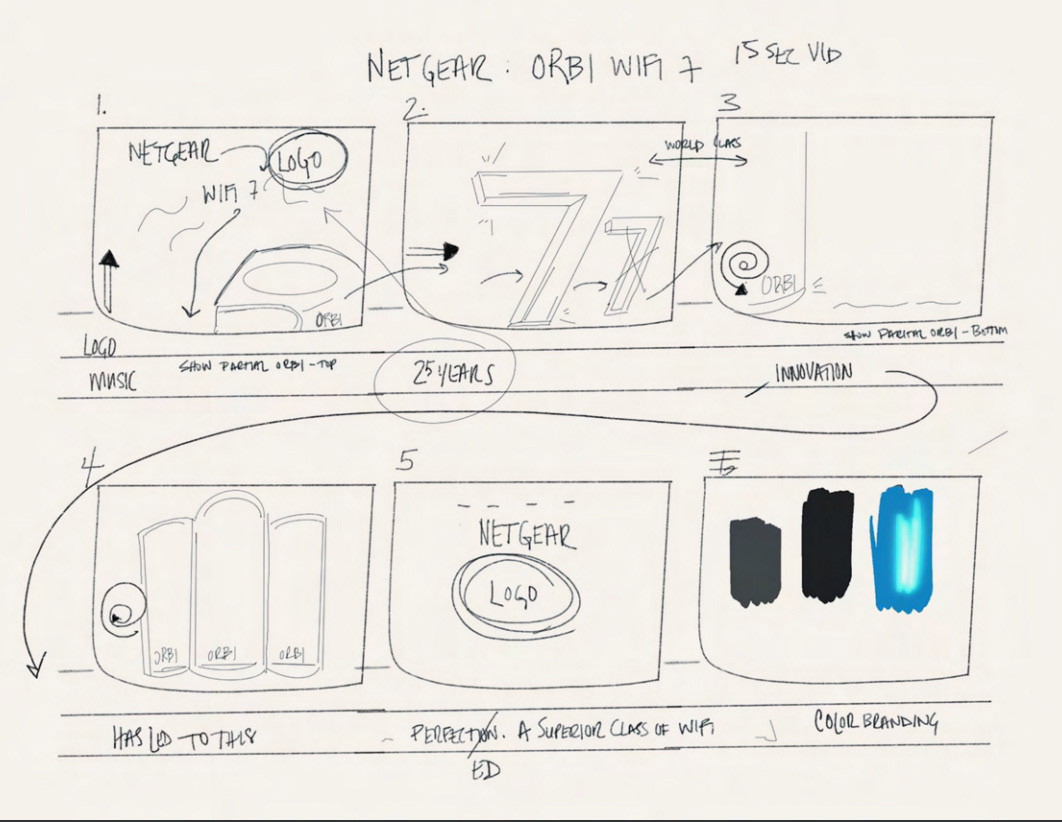 NETGEAR: ORBI WIFI 7 15 SEC VID
1.
2.
3
NETGEAR
LOGO
WIFI 7
ORBI
7
7
WORLD CLASS
ORBI
LOGO
MUSIC
SHOW PARTIAL ORBI-TOP
25 YEARS
SHOW PARITAL ORBI-BOTTOM
INNOVATION
4
5
ORBI
ORBI
ORBI
NETGEAR
LOGO
HAS LED TO THIS
PERFECTION. A SUPERIOR CLASS OF WIFI
ED
COLOR BRANDING